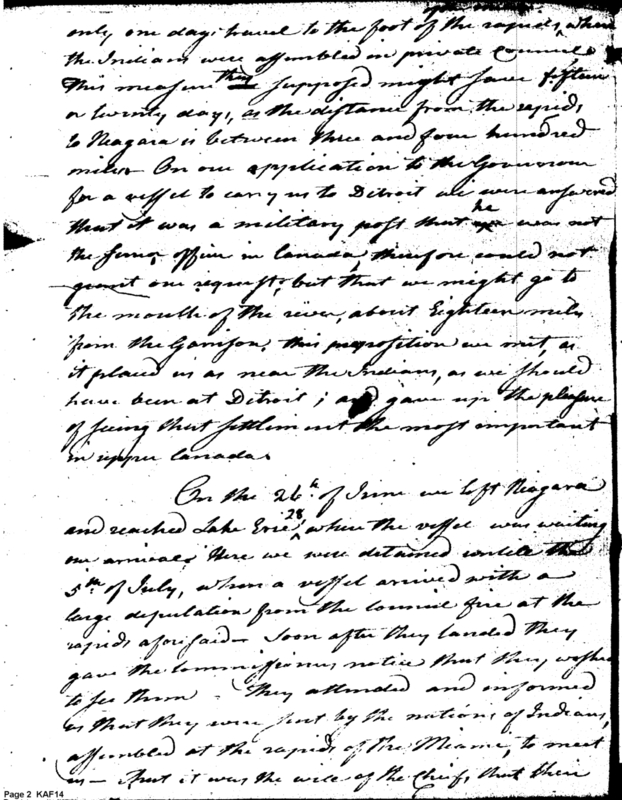 only one days travel to the foot of the rapids, where
the Indians were assembled in private Council
This measure they supposed might save fifteen
or twenty days, as the distance from the rapids
to Niagara is between three and four hundred
miles On our application to the Governour
for a vessel to carry us to Detroit we were answered
that it was a military post that he was not
the senr officer in Canada, therefore could not
grant our request, but that we might go to
the mouth of the river, about Eighteen miles
from the Garrison, this proposition we met, as
it placed us as near the Indians, as we should
have been at Detroit; and gave up the pleasure
of seeing that settlement the most important
in upper Canada.
On the 26th of June we left Niagara
and reached Lake Erie 28 where the vessel was waiting
our arrival Here we were detained untill the
5th of July, when a vessel arrived with a
large deputation from the Council fire at the
rapids aforesaid Soon after they landed they
gave the Commissioners notice that they wished
to see them They attended and informed
us that they were sent by the nations of Indians,
assembled at the rapids of the Meame, to meet
us — that it was the will of the Chiefs, that their
Page 2 KAF14